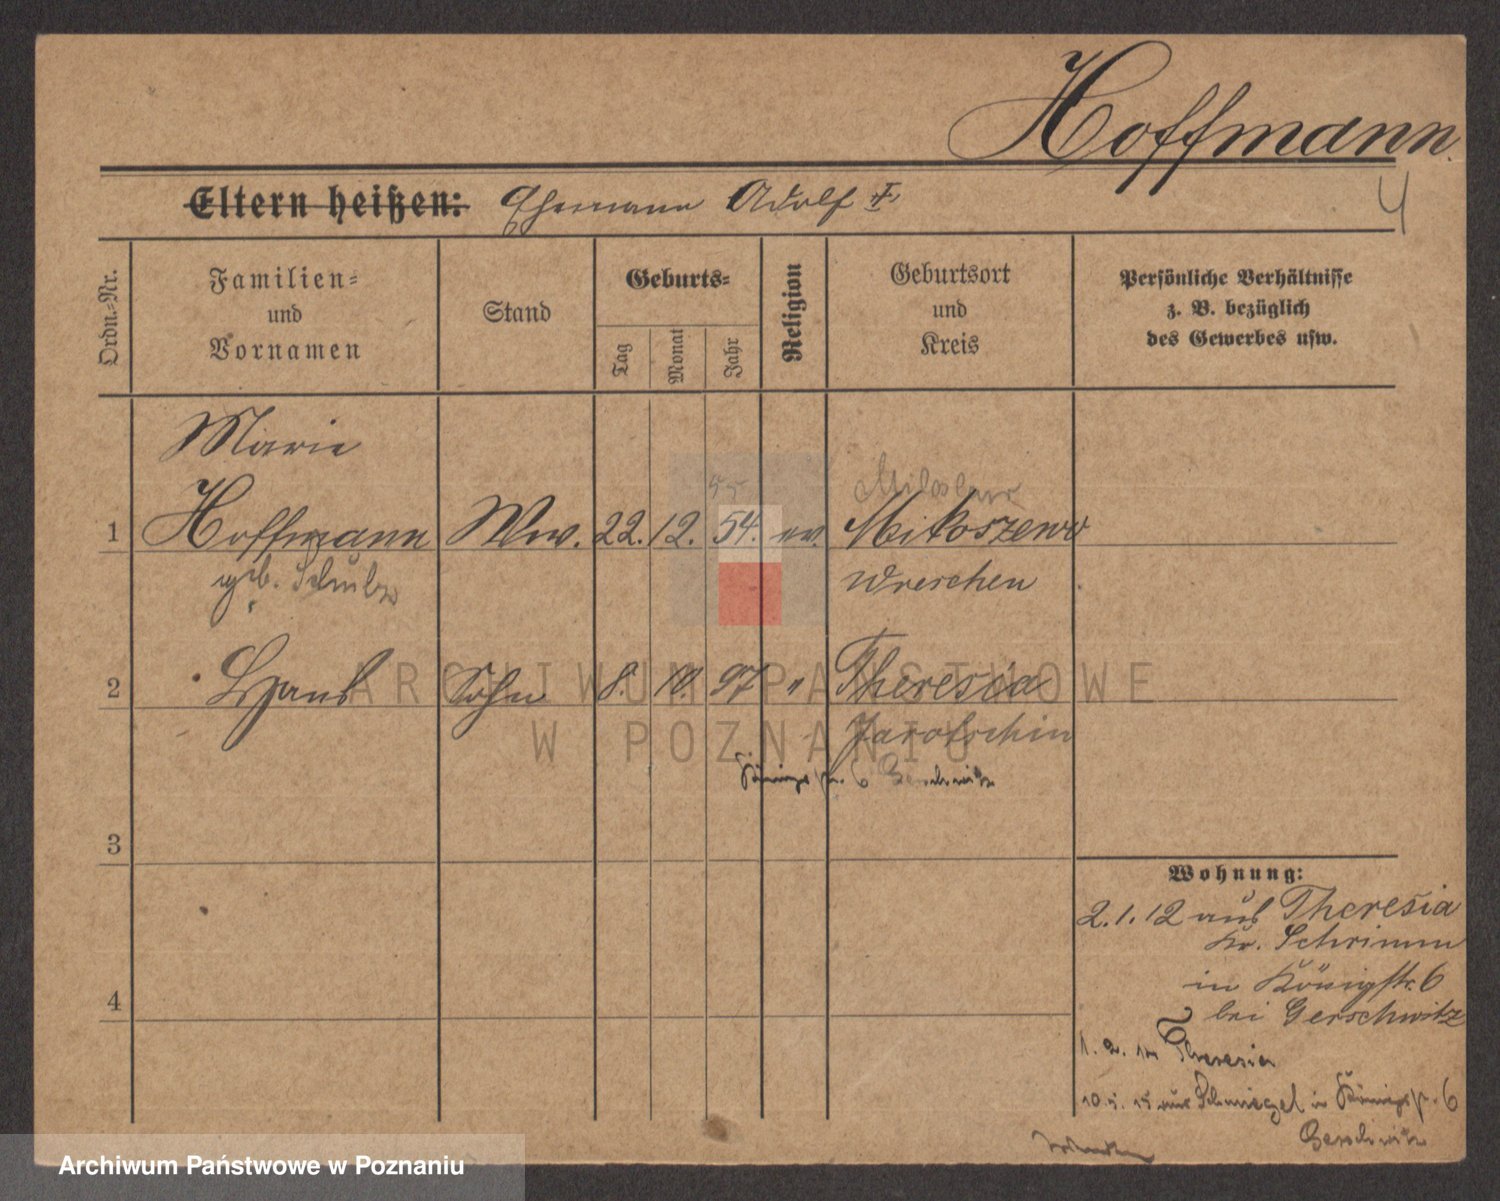 Hoffmann
4
Eltern heißen: Ehemann Adolf †
Ordn.-Nr.
Familien-
und
Vornamen
Stand
Geburts-
Tag
Monat
Jahr
Religion
Geburtsort
und
Kreis
Persönliche Verhältnisse
z. B. bezüglich
des Gewerbes usw.
Marie
55 Miloslaw
1 Hoffmann Ww. 22. 12. 54. ev. Mikoszewo
geb. Schulz Wreschen
2 Hans Sohn 8. 10. 97 " Theresia
Jarotschin
Königstr. 6 Gerschwitz
3
4
Wohnung:
2.1.12 aus Theresia
Kr. Schrimm
in Königstr. 6
bei Gerschwitz
1. 2. Theresia
10.5.15 aus Schmiegel in Königstr. 6
Gerschwitz
ARCHIWUM PAŃSTWOWE
W POZNANIU
Archiwum Państwowe w Poznaniu